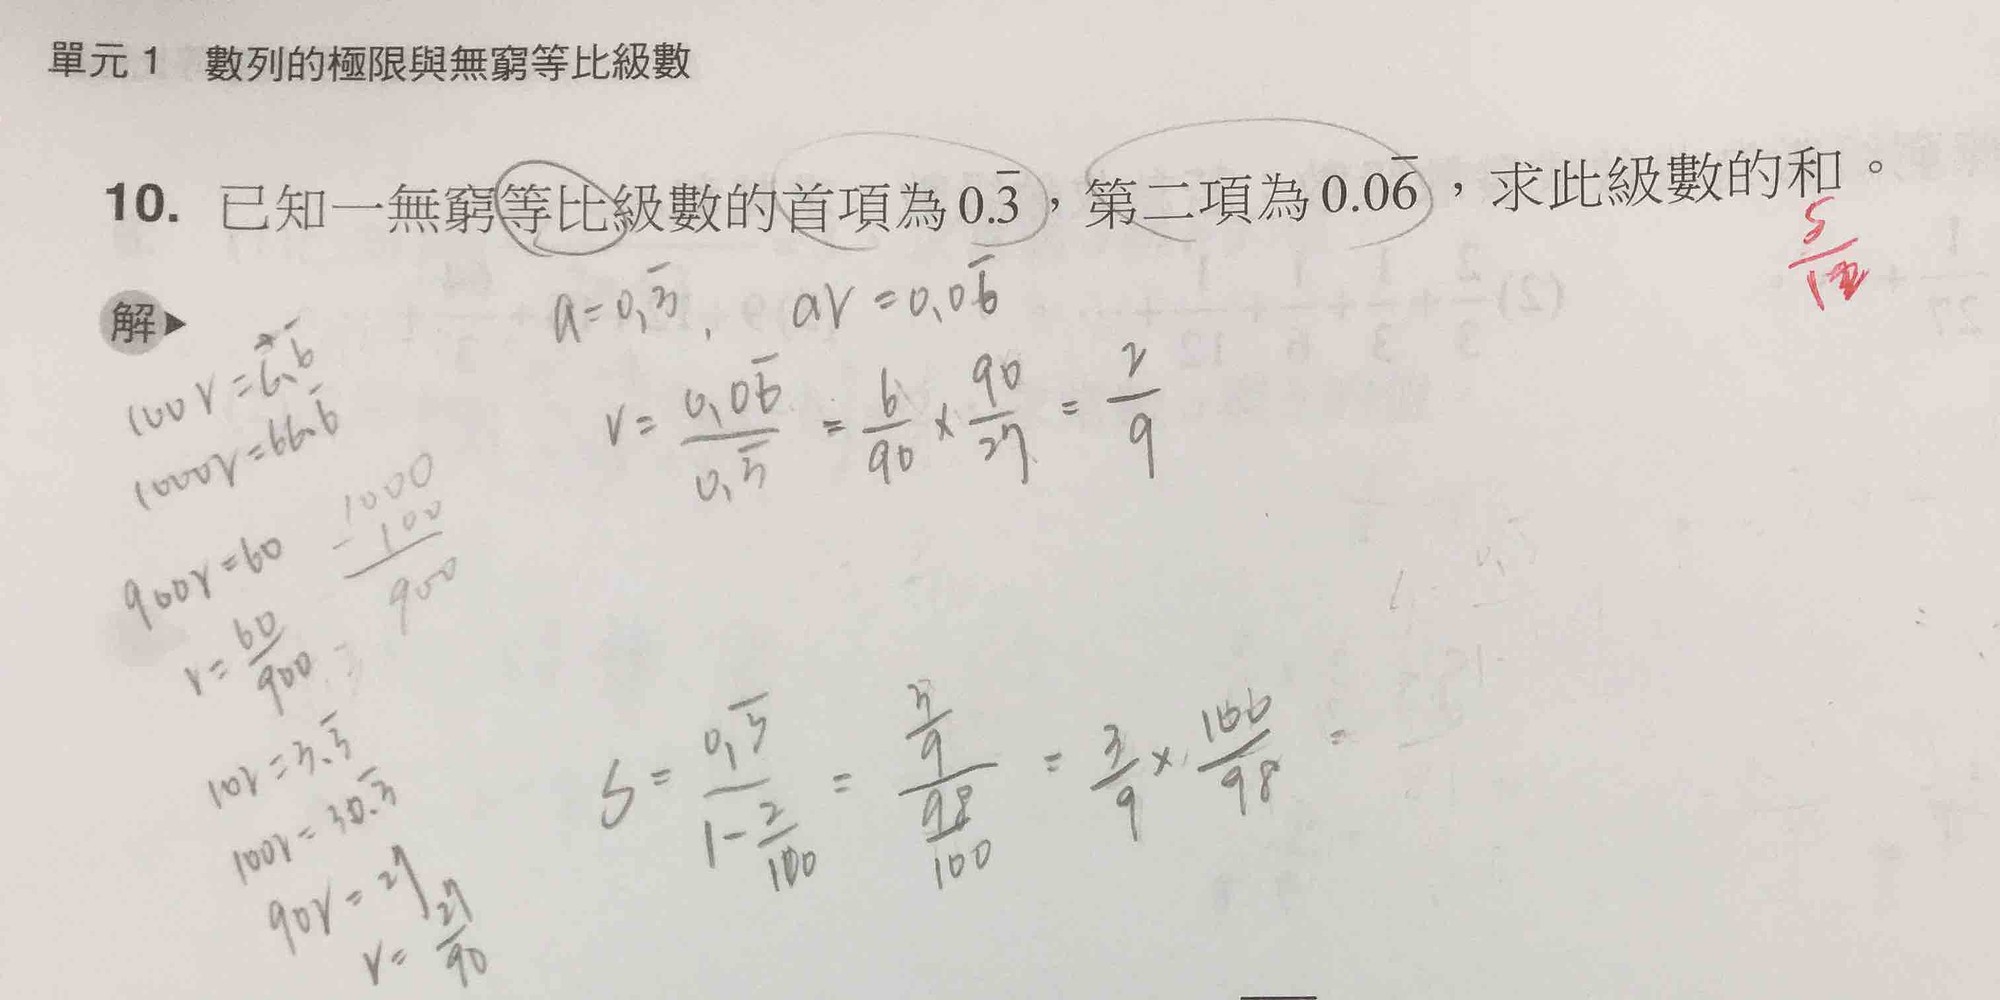 單元 1 數列的極限與無窮等比級數
10. 已知一無窮等比級數的首項為 0.3̅，第二項為 0.06̅，求此級數的和。
5/12
解▶
a=0.3̅, ar=0.06̅
r= 0.06̅/0.3̅ = 6/90 × 90/27 = 2/9
100r=6.6̅
1000r=66.6̅
900r=60
1000
-100
900
r=60/900
10r=3.3̅
100r=30.3̅
90r=27
r=27/90
S= 0.3̅/(1-2/100) = (3/9)/(98/100) = 3/9 × 100/98 =